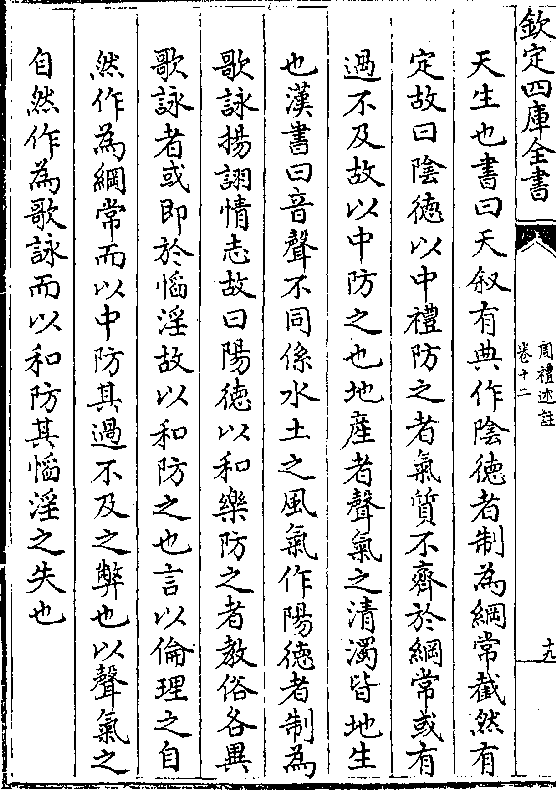 欽定四庫全書
周禮述註
卷十二
十九
天生也書曰天叙有典作陰德者制為綱常截然有
定故曰陰德以中禮防之者氣質不齊於綱常或有
過不及故以中防之也地產者聲氣之清濁皆地生
也漢書曰音聲不同係水土之風氣作陽德者制為
歌詠揚詡情志故曰陽德以和樂防之者教俗各異
歌詠者或即於慆淫故以和防之也言以倫理之自
然作為綱常而以中防其過不及之弊也以聲氣之
自然作為歌詠而以和防其慆淫之失也